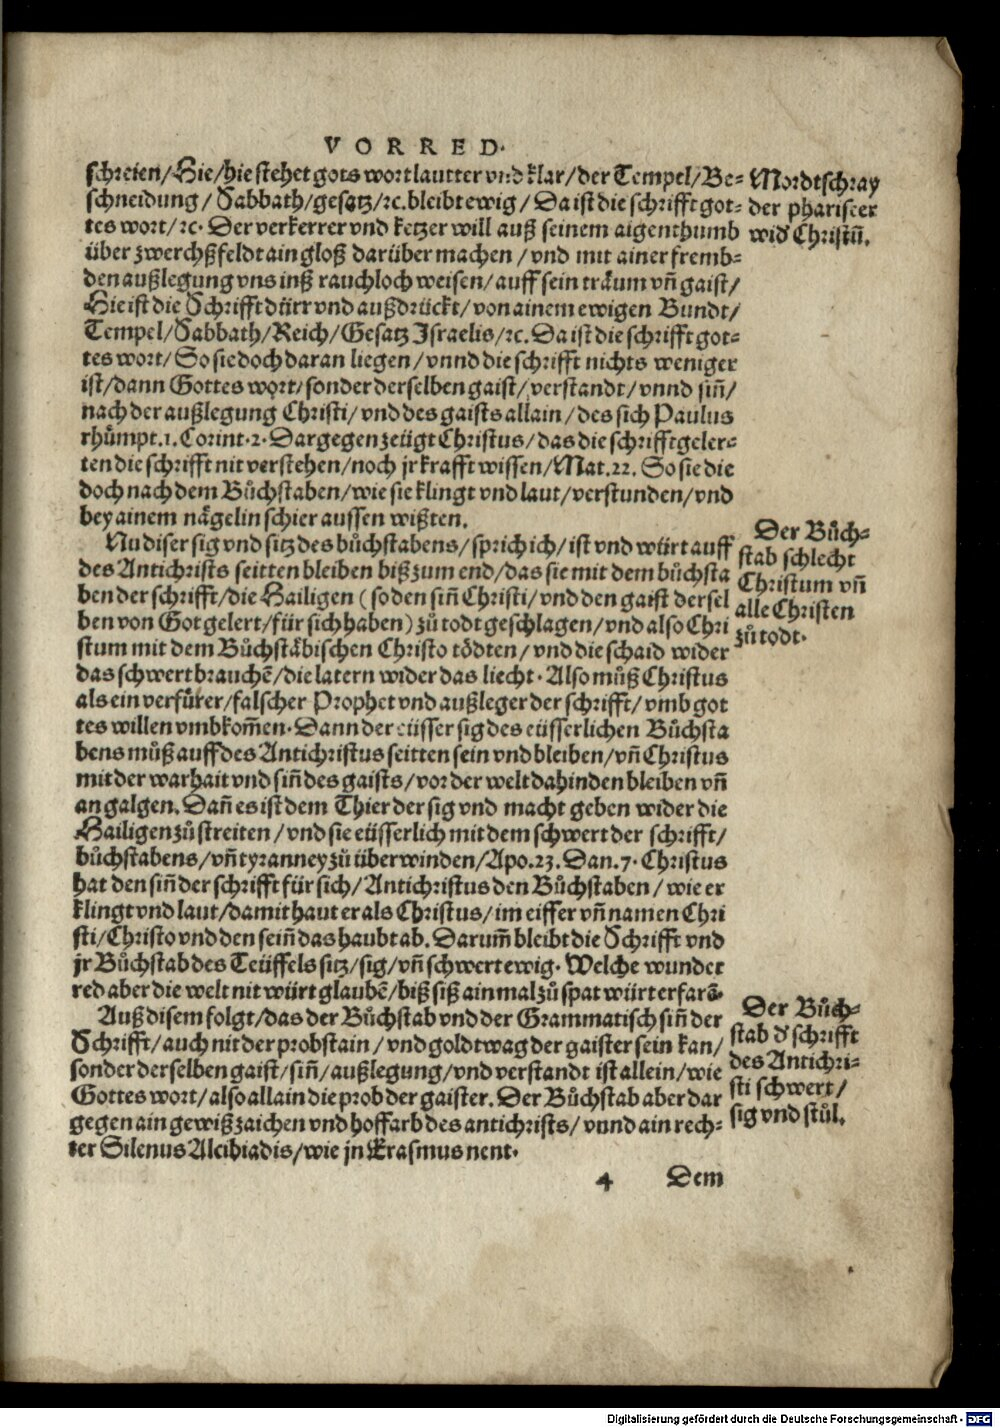 VORRED.
schreien/Hie/hie stehet gots wort lautter vnd klar/der Tempel/Be=
schneidung/Sabbath/gesatz/ꝛc. bleibt ewig/Da ist die schrifft got=
tes wort/ꝛc. Der verkerrer vnd ketzer will auß seinem aigenthumb
über zwerchßfeldt ain gloß darüber machen/vnd mit ainer fremb=
den außlegung vns inß rauchloch weisen/auff sein träum vñ gaist/
Hie ist die Schrifft dürr vnd außdrückt/von ainem ewigen Bundt/
Tempel/Sabbath/Reich/Gesatz Israelis/ꝛc. Da ist die schrifft got=
tes wort/So sie doch daran liegen/vnnd die schrifft nichts weniger
ist/dann Gottes wort/sonder derselben gaist/verstandt/vnnd siñ/
nach der außlegung Christi/vnd des gaists allain/des sich Paulus
rhůmpt. 1. Corint. 2. Dargegen zeügt Christus/das die schrifft geler=
ten die schrifft nit verstehen/noch jr krafft wissen/Mat. 22. So sie die
doch nach dem Bůchstaben/wie sie klingt vnd laut/verstunden/vnd
bey ainem nägelin schier aussen wißten.
Mordtschray
der phariseer
wid' Christũ.
Nu diser sig vnd sitz des bůchstabens/sprich ich/ist vnd würt auff
des Antichrists seitten bleiben biß zum end/das sie mit dem bůchsta
ben der schrifft/die Hailigen (so den siñ Christi/vnd den gaist der sel
ben von Got gelert/für sich haben) zů todt geschlagen/vnd also Chri
stum mit dem Bůchstäbischen Christo tödten/vnd die schaid wider
das schwert brauchẽ/die latern wider das liecht. Also můß Christus
als ein verfürer/falscher Prophet vnd außleger der schrifft/vmb got
tes willen vmbkom̃en. Dann der eüsser sig des eüsserlichen Bůchsta
bens můß auff des Antichristus seitten sein vnd bleiben/vñ Christus
mit der warhait vnd siñ des gaists/vor der welt dahinden bleiben vñ
an galgen. Dañ es ist dem Thier der sig vnd macht geben wider die
Hailigen zů streiten/vnd sie eüsserlich mit dem schwert der schrifft/
bůchstabens/vñ tyranney zů überwinden/Apo. 23. Dan. 7. Christus
hat den siñ der schrifft für sich/Antichristus den Bůchstaben/wie er
klingt vnd laut/damit haut er als Christus/im eiffer vñ namen Chri
sti/Christo vnd den seiñ das haubt ab. Darum̃ bleibt die Schrifft vnd
jr Bůchstab des Teüffels sitz/sig/vñ schwert ewig. Welche wunder
red aber die welt nit würt glaubẽ/biß siß ain mal zů spat würt erfarẽ.
Der Bůch=
stab schlecht
Christum vñ
alle Christen
zů todt.
Auß disem folgt/das der Bůchstab vnd der Grammatisch siñ der
Schrifft/auch nit der probstain/vnd goldtwag der gaister sein kan/
sonder derselben gaist/siñ/außlegung/vnd verstandt ist allein/wie
Gottes wort/also allain die prob der gaister. Der Bůchstab aber dar
gegen ain gewiß zaichen vnd hoffarb des antichrists/vnnd ain rech=
ter Silenus Alcibiadis/wie jn Erasmus nent.
Der Bůch=
stab d' schrifft
des Antichri=
sti schwert/
sig vnd stůl.
4 Dem
Digitalisierung gefördert durch die Deutsche Forschungsgemeinschaft - DFG